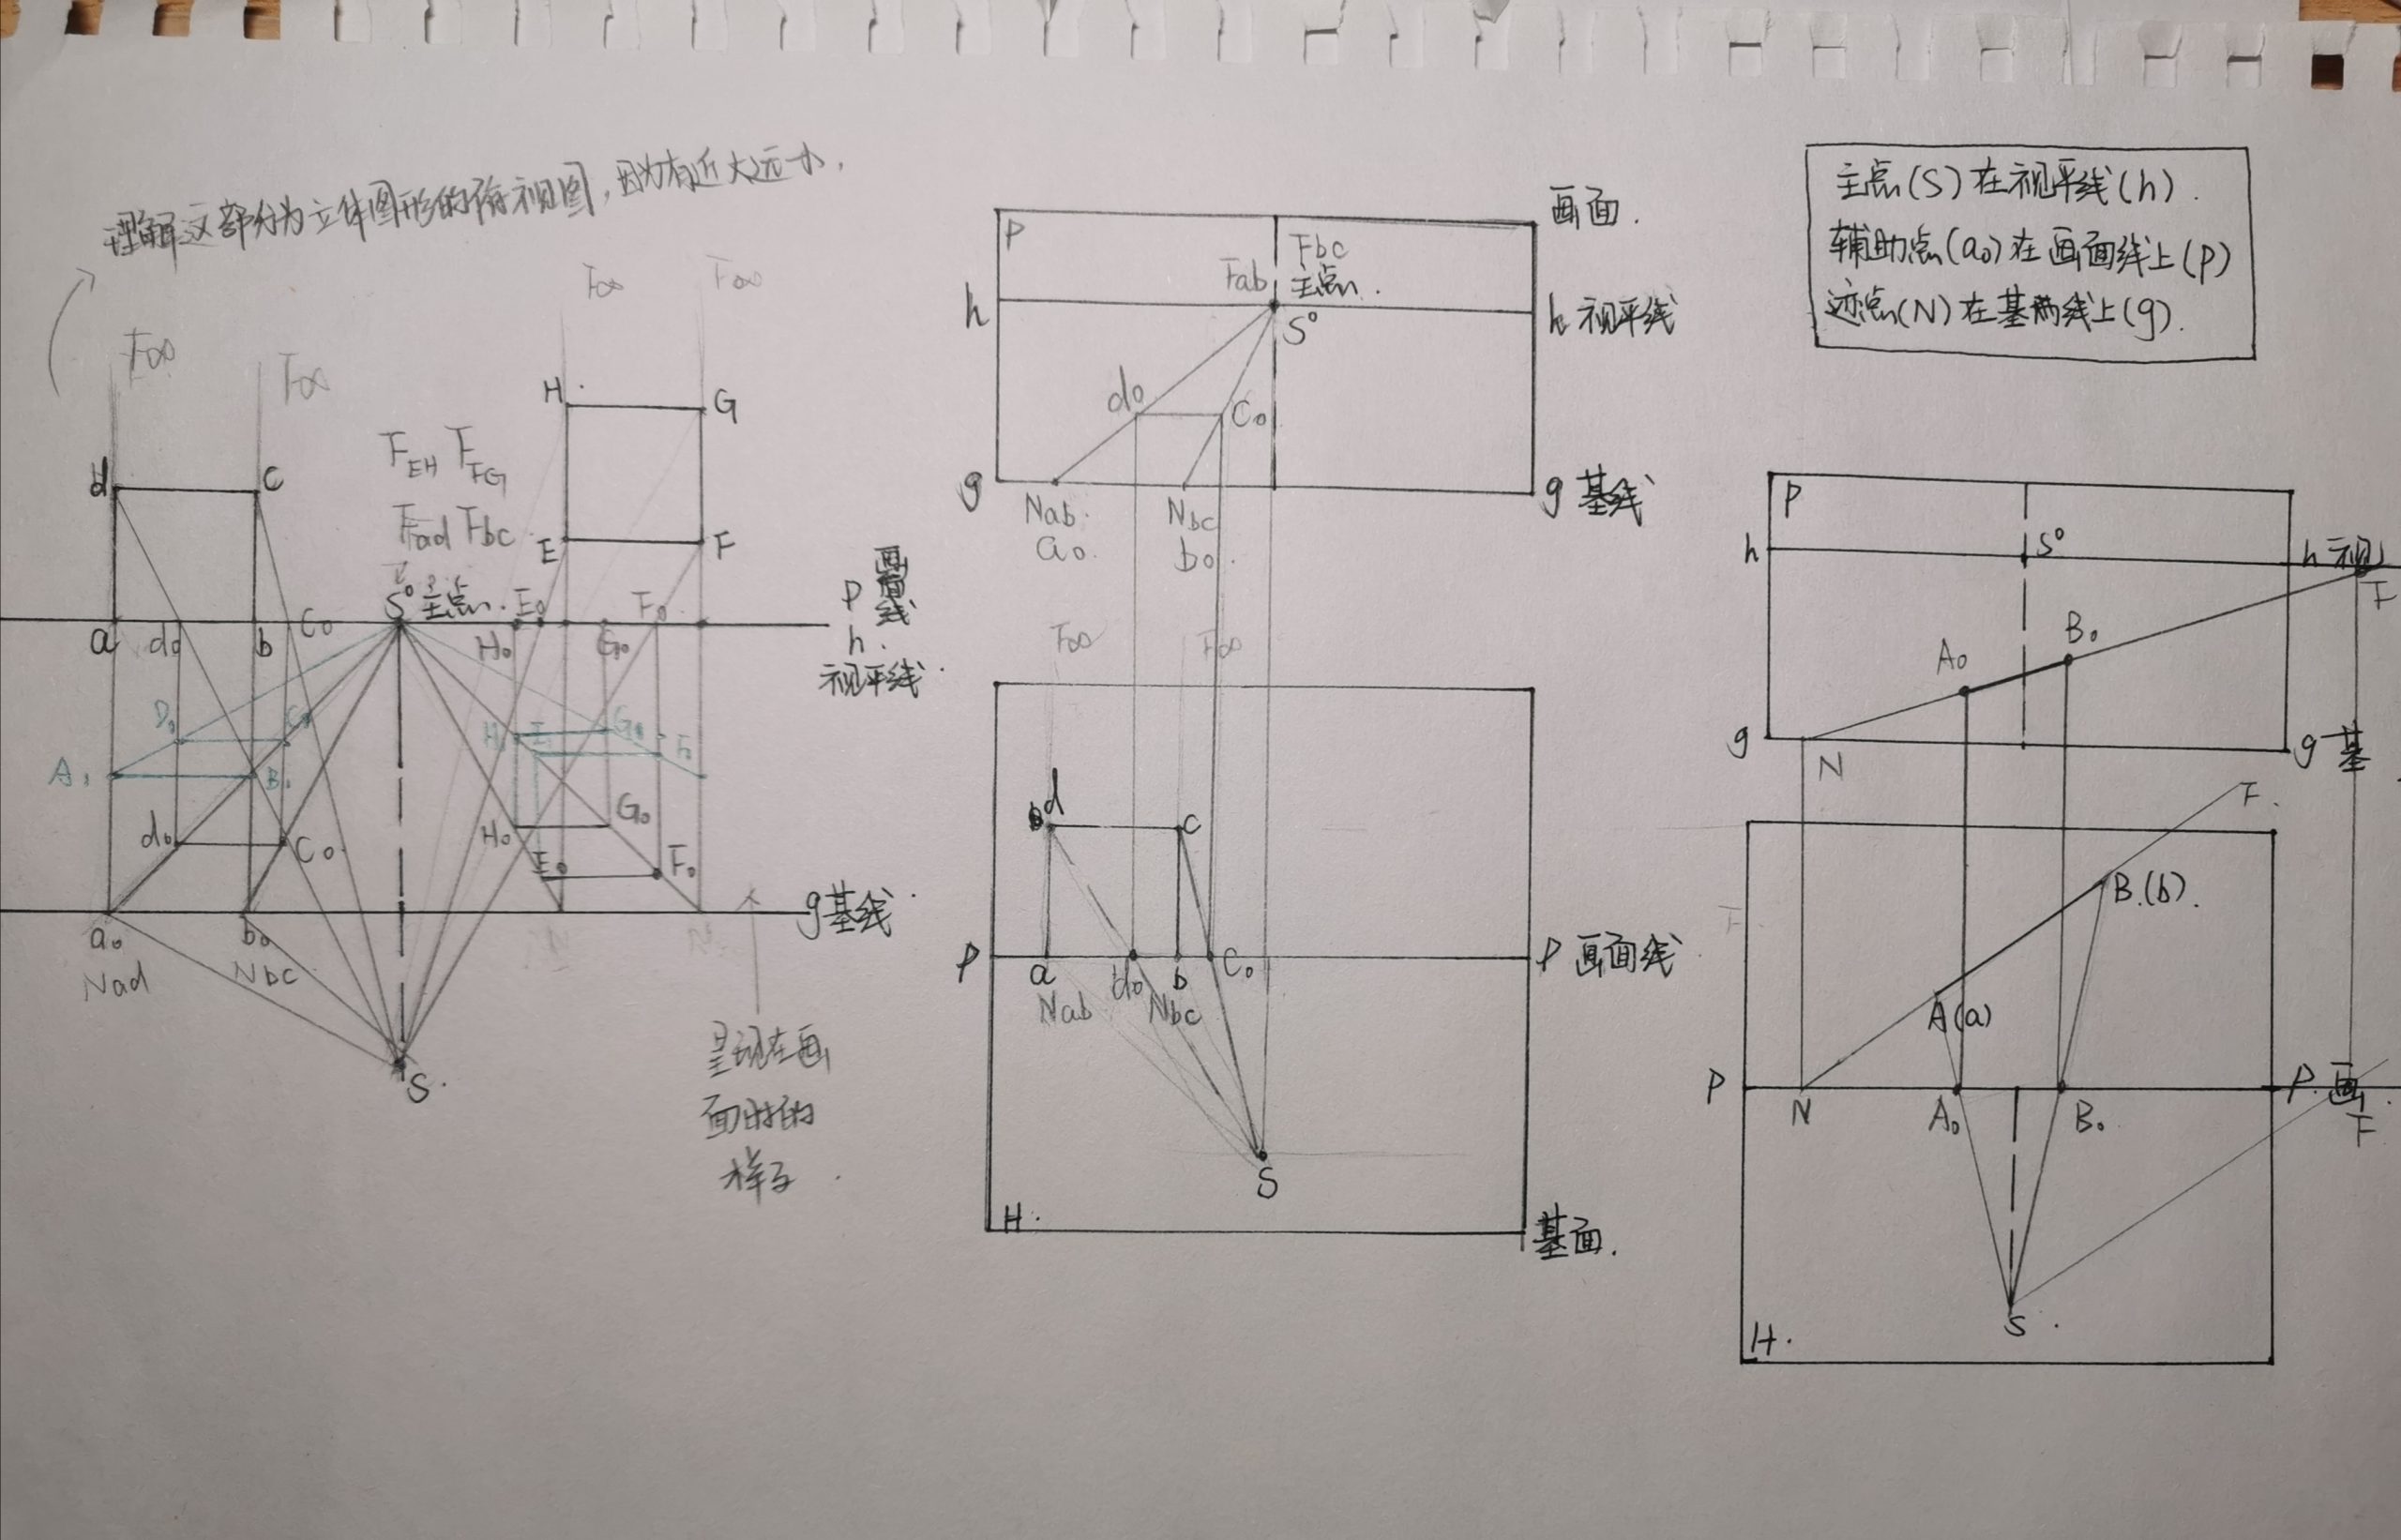 理解这部分为立体图形的俯视图，因为有近大远小，
F∞
F∞
F∞
F∞
H
G
d
C
F_EH F_FG
F_ad F_bc
E
F
S° 主点
E₀
F₀
P 画面线
a
d₀
b
C₀
H₀
G₀
h
视平线
D₀
C₀
H₁
E₁
G₀
F₀
A₁
B₁
d₀
C₀
H₀
G₀
E₀
F₀
g基线
a₀
b₀
N
N
Nad
Nbc
S
呈现在画
面时的
样子
画面
P
Fbc
Fab
主点
h
h 视平线
S°
d₀
C₀
g
g 基线
Nab
Nbc
a₀
b₀
F∞
F∞
d
C
P
P 画面线
a
d₀
b
C₀
Nab
Nbc
S
H
基面
主点(S)在视平线(h)
辅助点(a₀)在画面线上(P)
迹点(N)在基线上(g)
P
h
S°
h 视
F
A₀
B₀
g
g 基
N
F
B(b)
F
A(a)
P
P 画
N
A₀
B₀
F
S
H